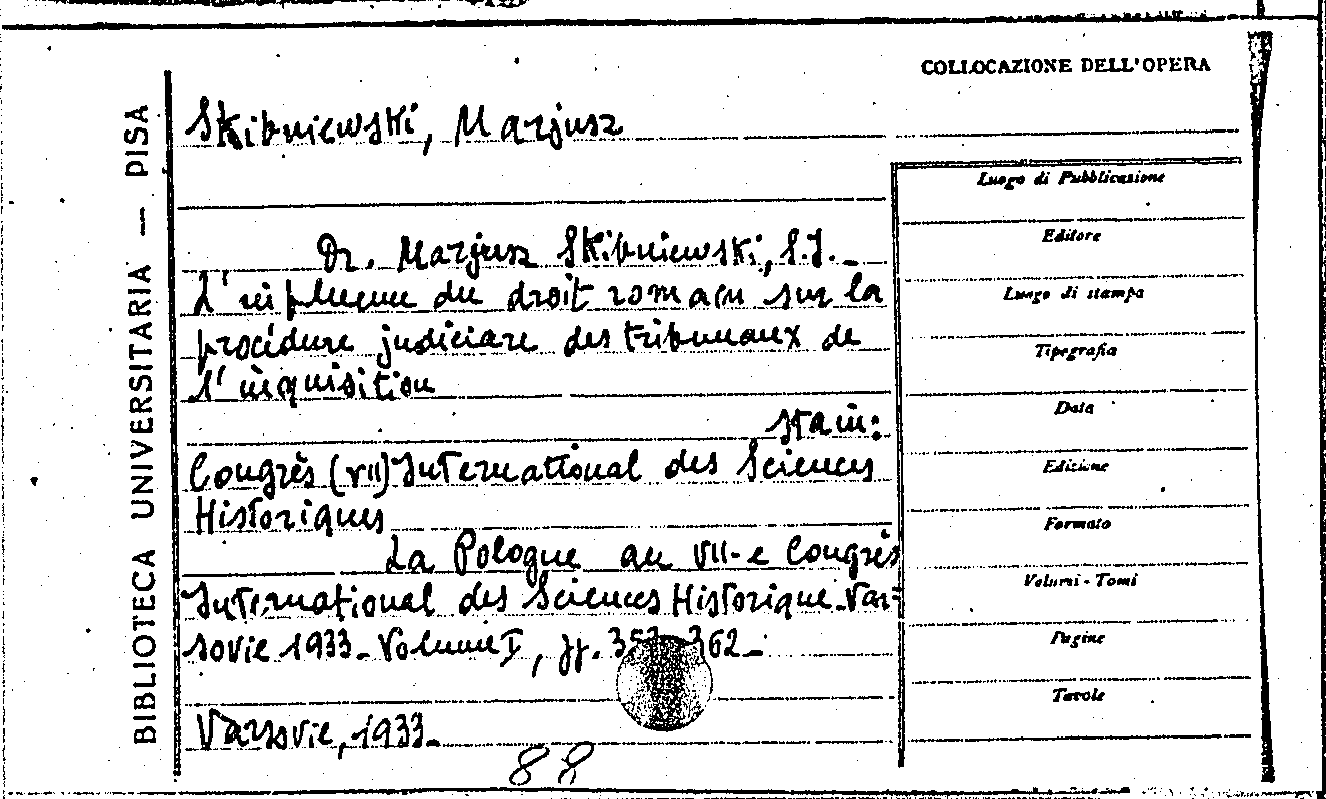 COLLOCAZIONE DELL'OPERA
BIBLIOTECA UNIVERSITARIA — PISA
Skibniewski, Marjusz
Dr. Marjusz Skibniewski, S.J. _
L'influence du droit romain sur la
procédure judiciare des tribunaux de
l'inquisition
sta in:
Congrès (VII) International des Sciences
Historiques
La Pologne au VII-e Congrès
International des Sciences Historique. Var-
sovie 1933 - Volume I, pp. 362 -
Varsovie, 1933 -
88
Luogo di Pubblicazione
Editore
Luogo di stampa
Tipografia
Data
Edizione
Formato
Volumi - Tomi
Pagine
Tavole